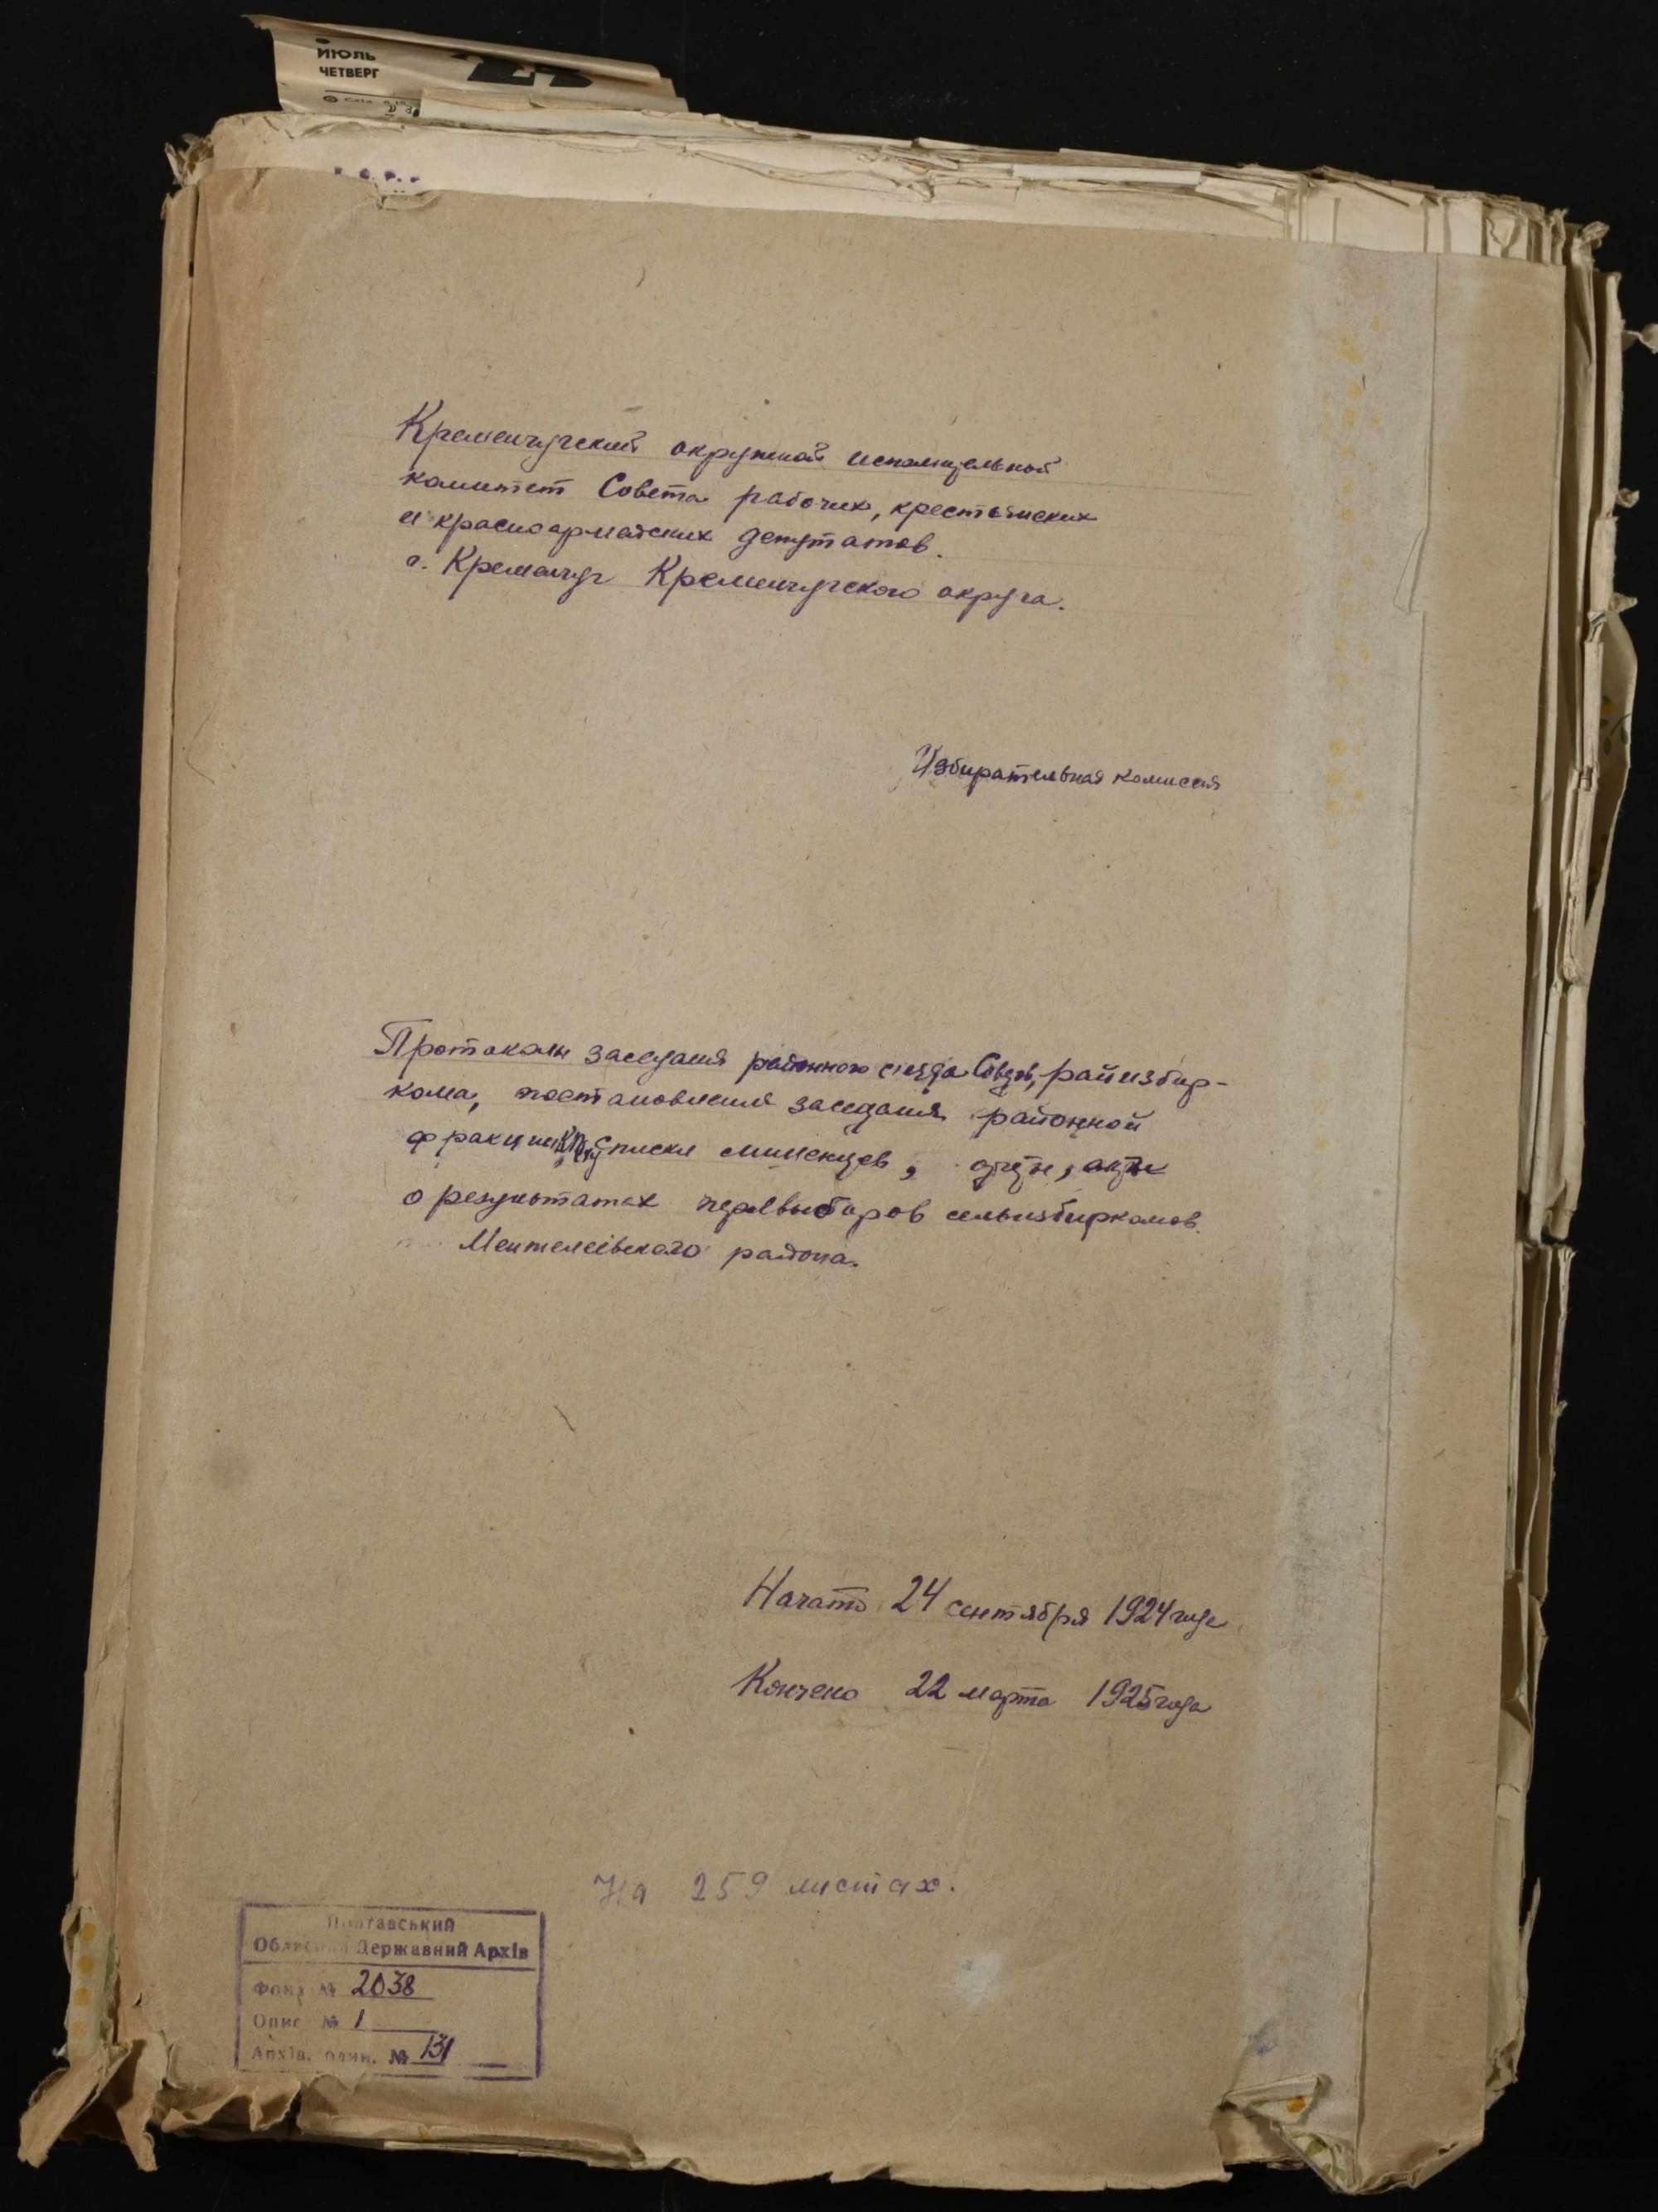 ИЮЛЬ
ЧЕТВЕРГ
Кременчугский окружной исполнительный
комитет Совета рабочих, крестьянских
и красноармейских депутатов.
г. Кременчуг Кременчугского округа.
Избирательная комиссия
Протоколы заседания районного съезда Советов, райизбир-
кома, постановления заседания районной
фракции списки
о результатах перевыборов сельизбиркомов
района.
Начато 24 сентября 1924 года
Кончено 22 марта 1925 года
На 259 листах.
Полтавський
Обласний Державний Архів
Фонд № 2038
Опис № 1
Архів. один. № 131